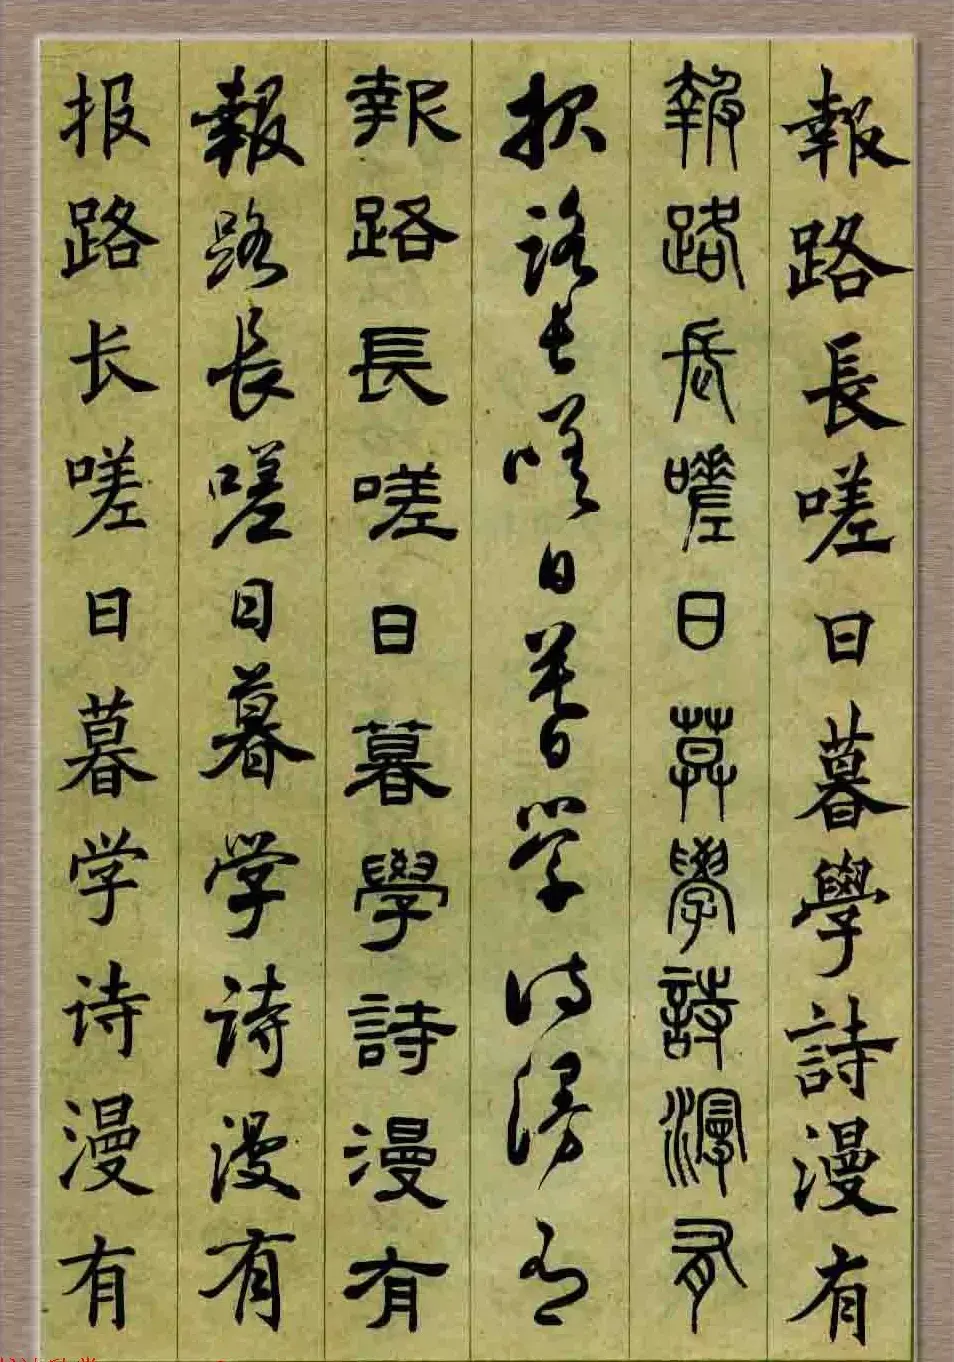 報路長嗟日暮學詩漫有
報路長嗟日暮學詩漫有
报路长嗟日暮学诗漫有
報路長嗟日暮學詩漫有
報路長嗟日暮学诗漫有
报路长嗟日暮学诗漫有